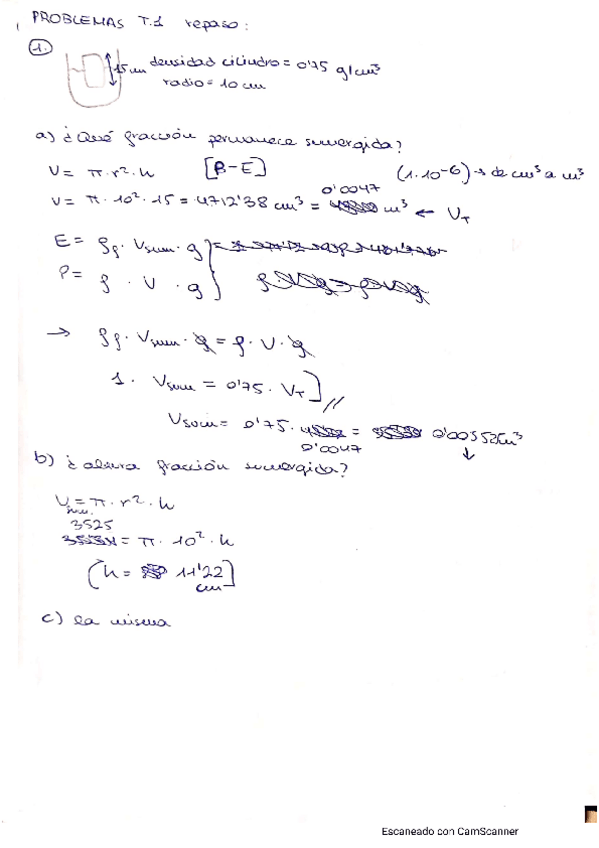 PROBLEMAS T.1 repaso:
1.
15 cm densidad cilindro = 0'75 g/cm³
radio = 10 cm
a) ¿Qué fracción permanece sumergida?
V = π·r²·h [P-E] (1·10⁻⁶) → de cm³ a m³
V = π·10²·15 = 4712'38 cm³ = 0'0047 m³ ← V_T
E = ρf · Vsum · g
P = ρ · V · g
→ ρf · Vsum · g = ρ · V · g
1 · Vsum = 0'75 · V_T]
Vsum = 0'75 · 0'0047 = 0'003525 m³
b) ¿altura fracción sumergida?
V = π·r²·h
sum.
3525 = π · 10² · h
(h = 11'22 cm]
c) la misma
Escaneado con CamScanner